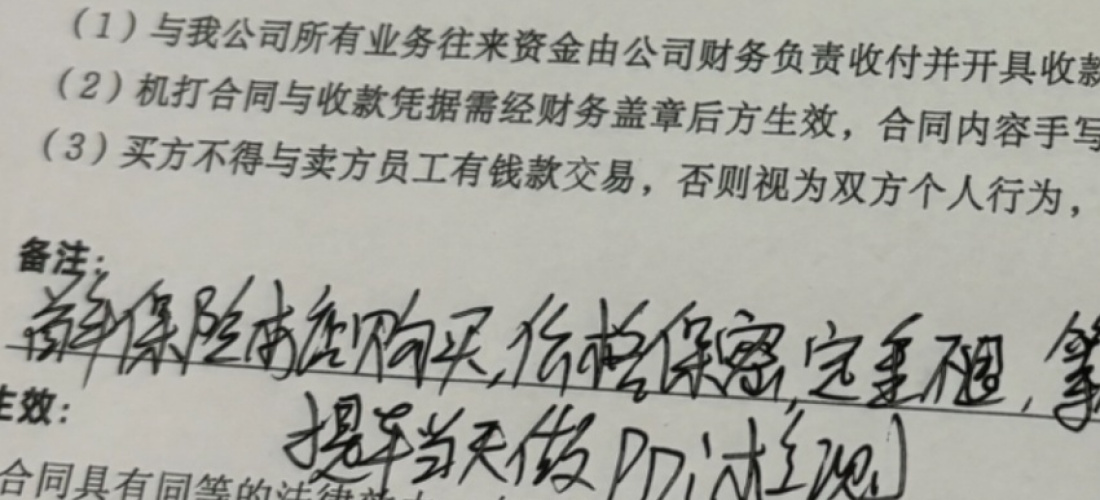 (1)与我公司所有业务往来资金由公司财务负责收付并开具收款
(2)机打合同与收款凭据需经财务盖章后方生效，合同内容手写
(3)买方不得与卖方员工有钱款交易，否则视为双方个人行为，
备注：
首年保险本店购买，价格保密，定车不退，
生效：
提车当天做PDi过检测
合同具有同等的法律效力